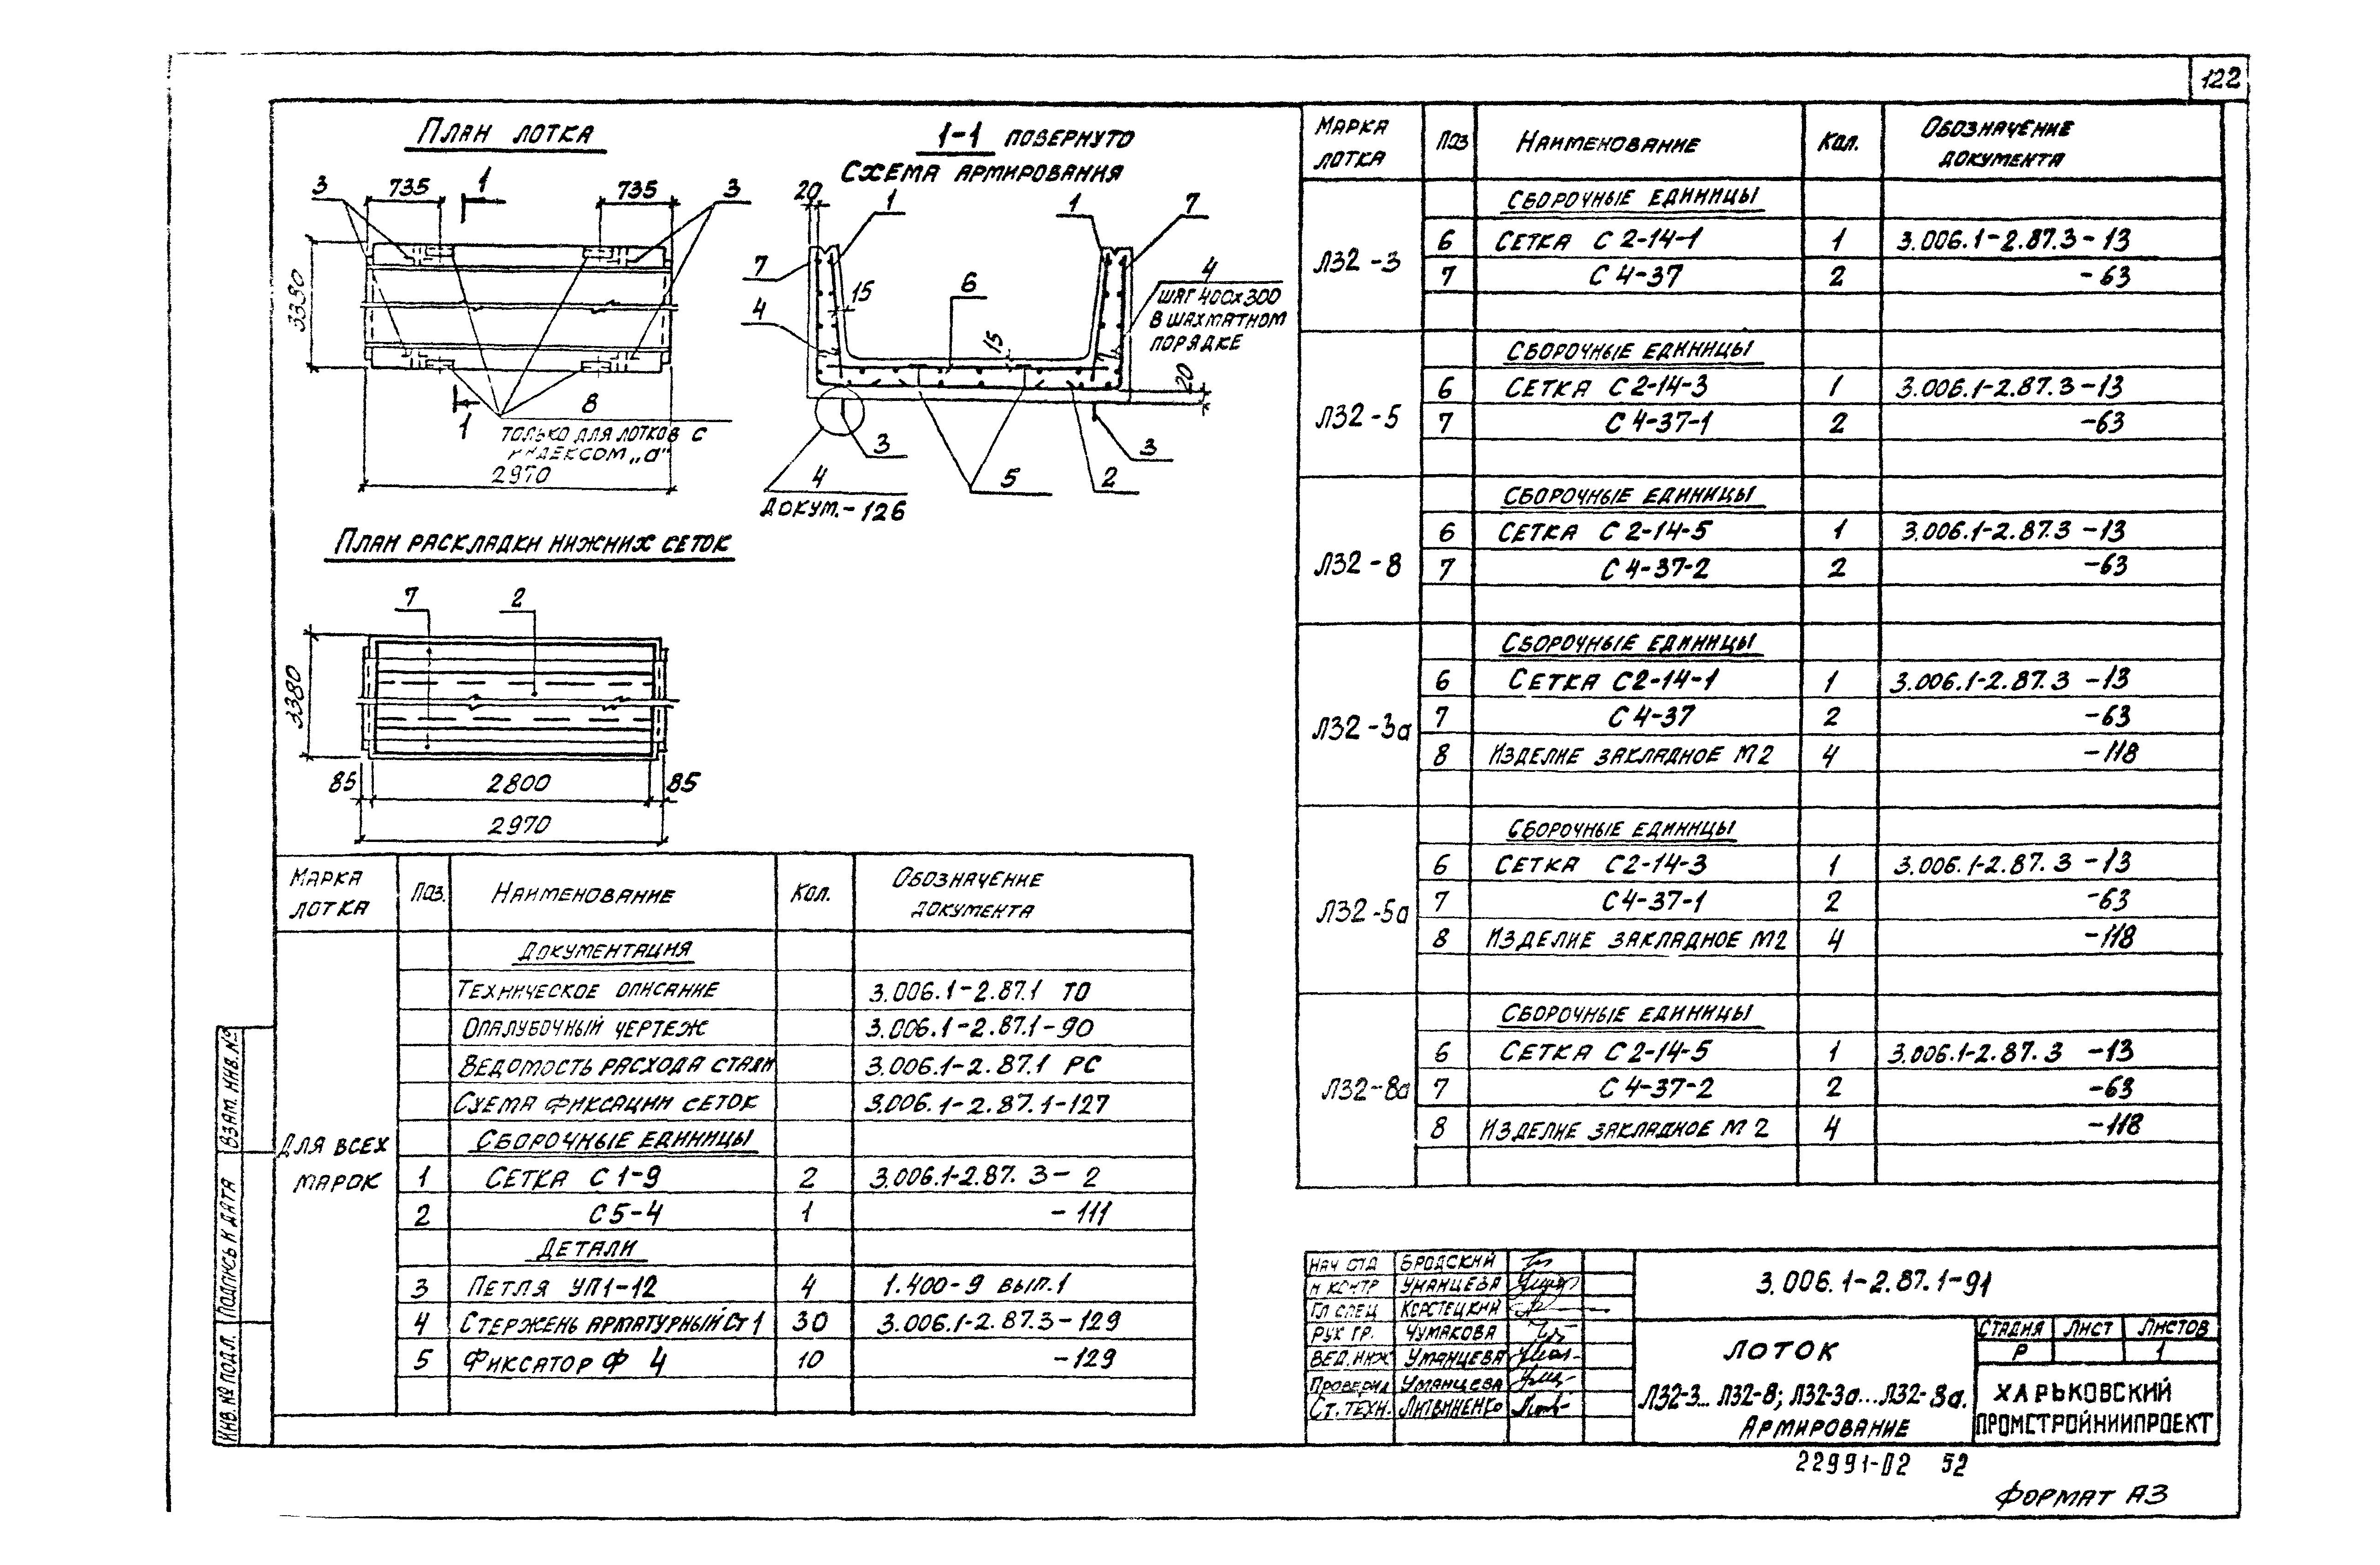 122
План лотка
3
735
1
735
3
3380
1
8
только для лотков с
индексом „а"
2970
1-1 повернуто
Схема армирования
20
1
1
7
7
4
15
6
15
4
шаг 400х300
в шахматном
порядке
20
3
3
4
5
2
докум.-126
План раскладки нижних сеток
7
2
3380
85
2800
85
2970
Марка лотка Поз. Наименование Кол. Обозначение документа
Для всех марок
Документация
Техническое описание 3.006.1-2.87.1 ТО
Опалубочный чертеж 3.006.1-2.87.1-90
Ведомость расхода стали 3.006.1-2.87.1 РС
Схема фиксации сеток 3.006.1-2.87.1-127
Сборочные единицы
1 Сетка С 1-9 2 3.006.1-2.87.3-2
2 С 5-4 1 -111
Детали
3 Петля УП1-12 4 1.400-9 вып.1
4 Стержень арматурный Ст 1 30 3.006.1-2.87.3-129
5 Фиксатор Ф 4 10 -129
Марка лотка Поз Наименование Кол. Обозначение документа
Л32-3
Сборочные единицы
6 Сетка С 2-14-1 1 3.006.1-2.87.3-13
7 С 4-37 2 -63
Л32-5
Сборочные единицы
6 Сетка С 2-14-3 1 3.006.1-2.87.3-13
7 С 4-37-1 2 -63
Л32-8
Сборочные единицы
6 Сетка С 2-14-5 1 3.006.1-2.87.3-13
7 С 4-37-2 2 -63
Л32-3а
Сборочные единицы
6 Сетка С2-14-1 1 3.006.1-2.87.3-13
7 С 4-37 2 -63
8 Изделие закладное М2 4 -118
Л32-5а
Сборочные единицы
6 Сетка С2-14-3 1 3.006.1-2.87.3-13
7 С4-37-1 2 -63
8 Изделие закладное М2 4 -118
Л32-8а
Сборочные единицы
6 Сетка С 2-14-5 1 3.006.1-2.87.3-13
7 С 4-37-2 2 -63
8 Изделие закладное М 2 4 -118
Нач отд Бродский
Н контр Уманцева
Гл спец Корстецкий
Рук гр. Чумакова
Вед. инж Уманцева
Проверил Уманцева
Ст. техн. Литвиненко
3.006.1-2.87.1-91
Лоток
Л32-3...Л32-8; Л32-3а...Л32-8а.
Армирование
Стадия Лист Листов
Р 1
Харьковский
Промстройниипроект
Инв. № подл. Подпись и дата Взам. инв. №
22991-02 52
Формат А3